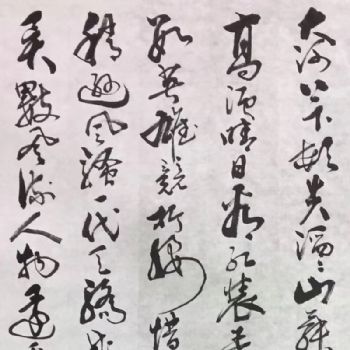 大河上下頓失滔滔山舞
高須晴日看紅裝素
數英雄競折腰惜
稍遜風騷一代天驕成
矣數風流人物還